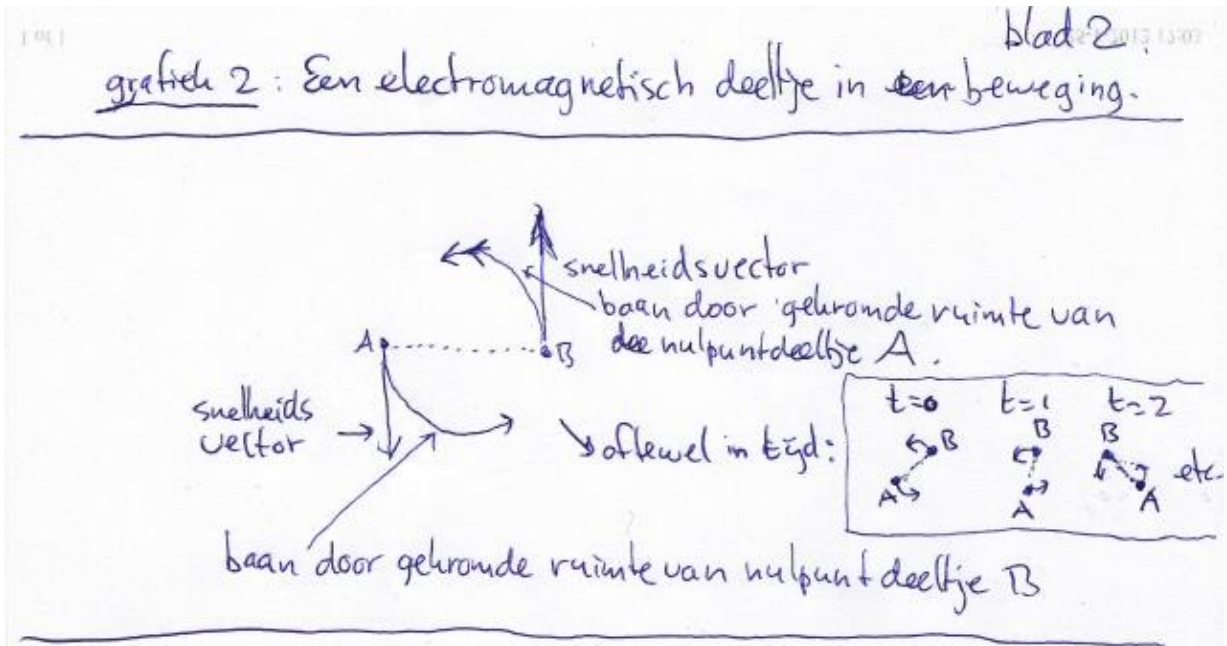 blad 2.
grafiek 2: Een electromagnetisch deeltje in beweging.
snelheidsvector
baan door gekromde ruimte van
nulpuntdeeltje A.
A
B
snelheids
vector
oftewel in tijd:
t=0 t=1 t=2
B B B
A A A
etc.
baan door gekromde ruimte van nulpuntdeeltje B